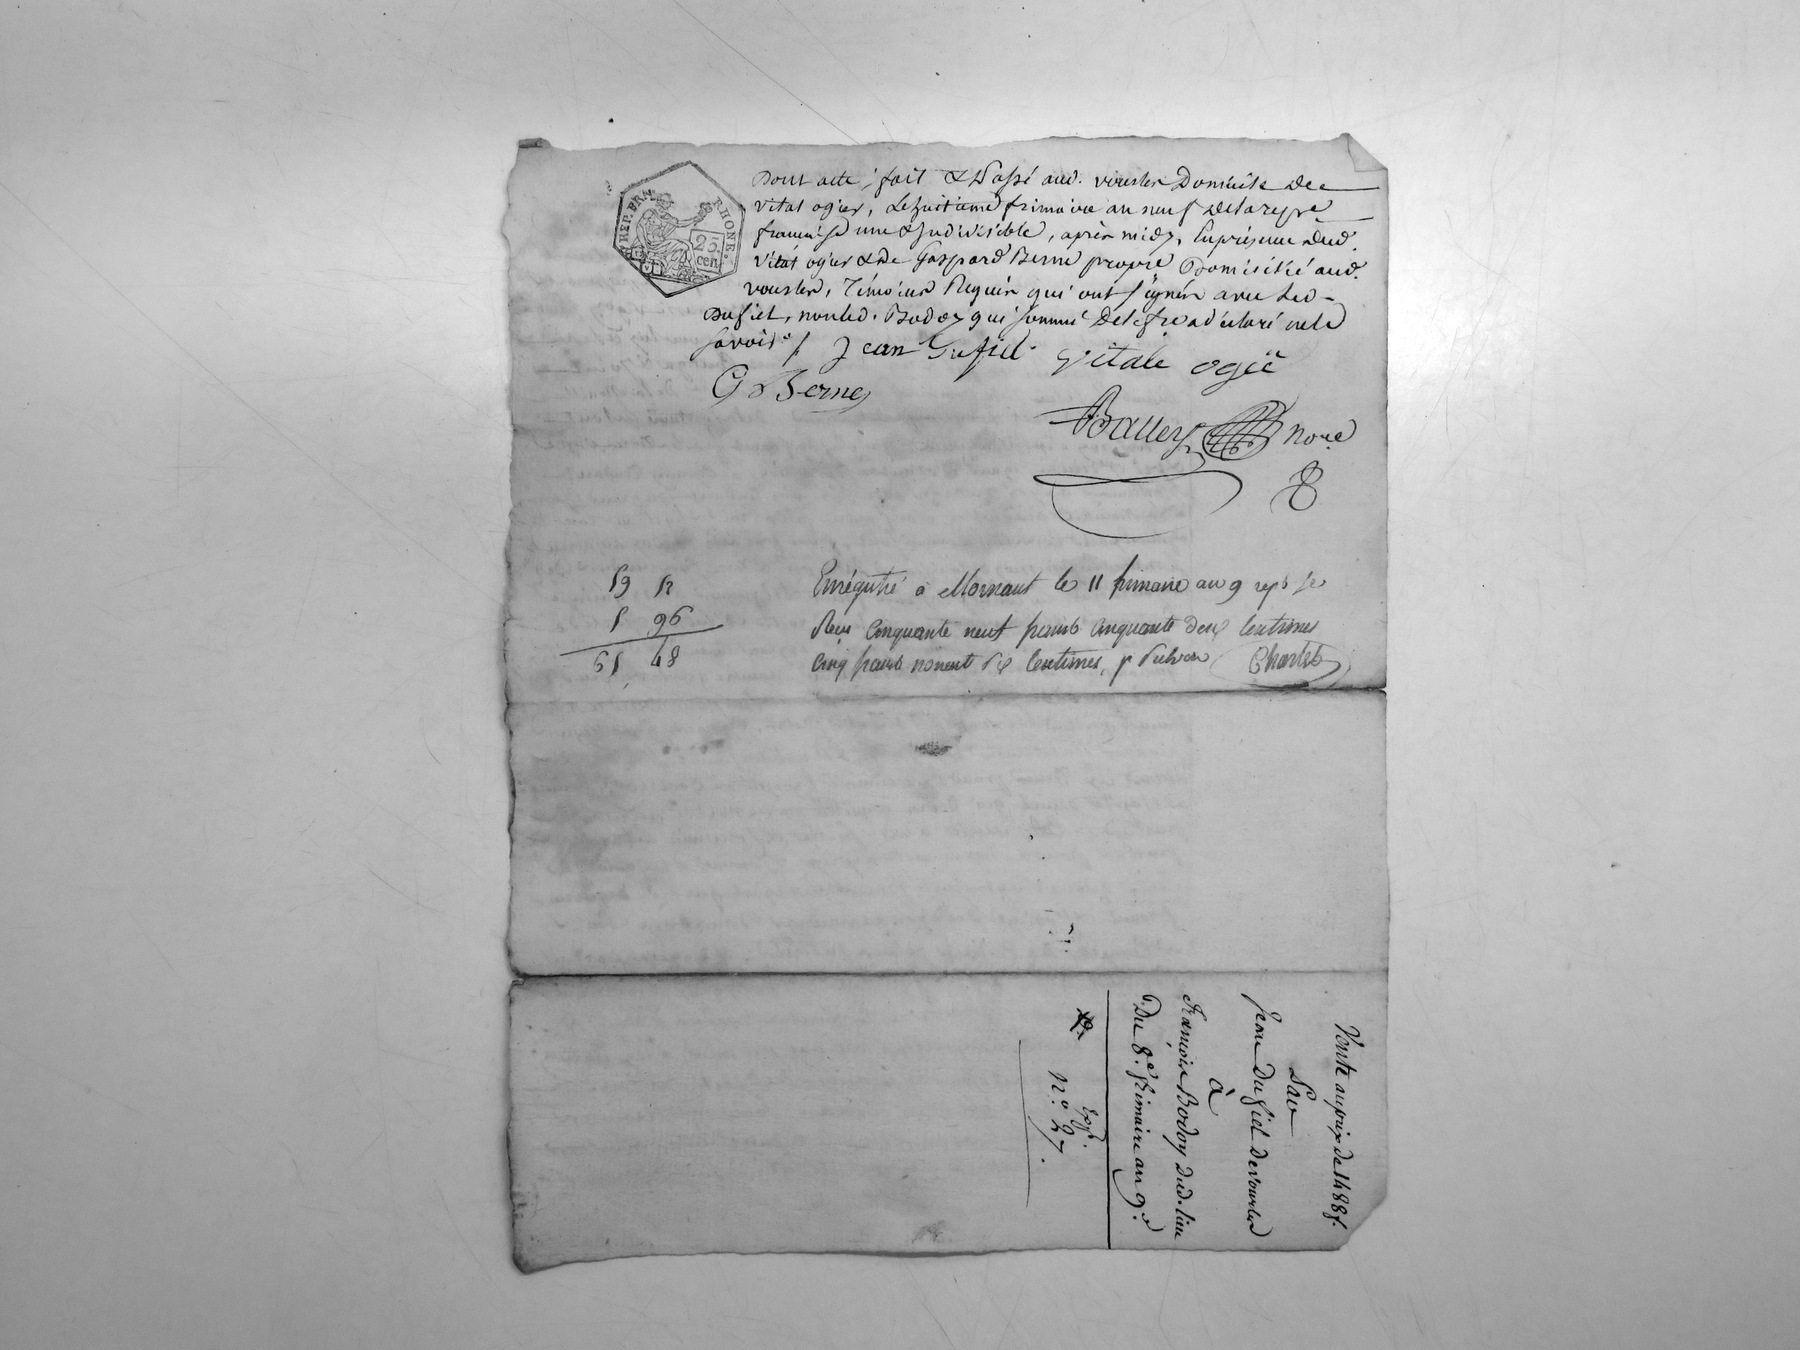 REP. FRA
RHONE.
25
cen
Dont acte, fait & Passé aud. vourles Domicile de
vital ogier, le huitieme frimaire an neuf de la repe
francaise une & Indivisible, après midy, En présence dud.
vital ogier & de Gaspard Berne propre Domicilié aud.
vourles, Témoins Requis qui ont signés avec led
Dufiet, non led. Bodoy qui sommé de le fre a déclaré ne le
savoir /
Jean Dufiet
vitale ogië
G Berne
Balley nore
59 52
5 96
65 48
Enrégistré à Mornant le 11 frimaire an 9 rep
Reçu Cinquante neuf francs cinquante deux Centimes
Cinq francs nonent six Centimes, pr Subvon Charlet
Vente au prix de 1488f.
Par
Jean Dufiet de vourles
à
François Bodoy dud. lieu
Du 8.e frimaire an 9.e
Exp.
n.o 27.